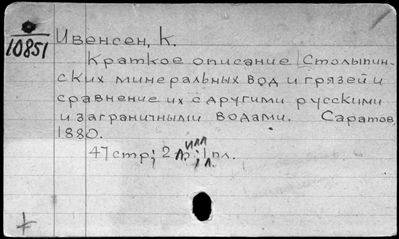 10851
Ивенсен, К.
Краткое описание Столыпин-
ских минеральных вод и грязей и
сравнение их с другими русскими
и заграничными водами. Саратов,
1880.
47 стр; 2 илл; 1 пл.
1 л.